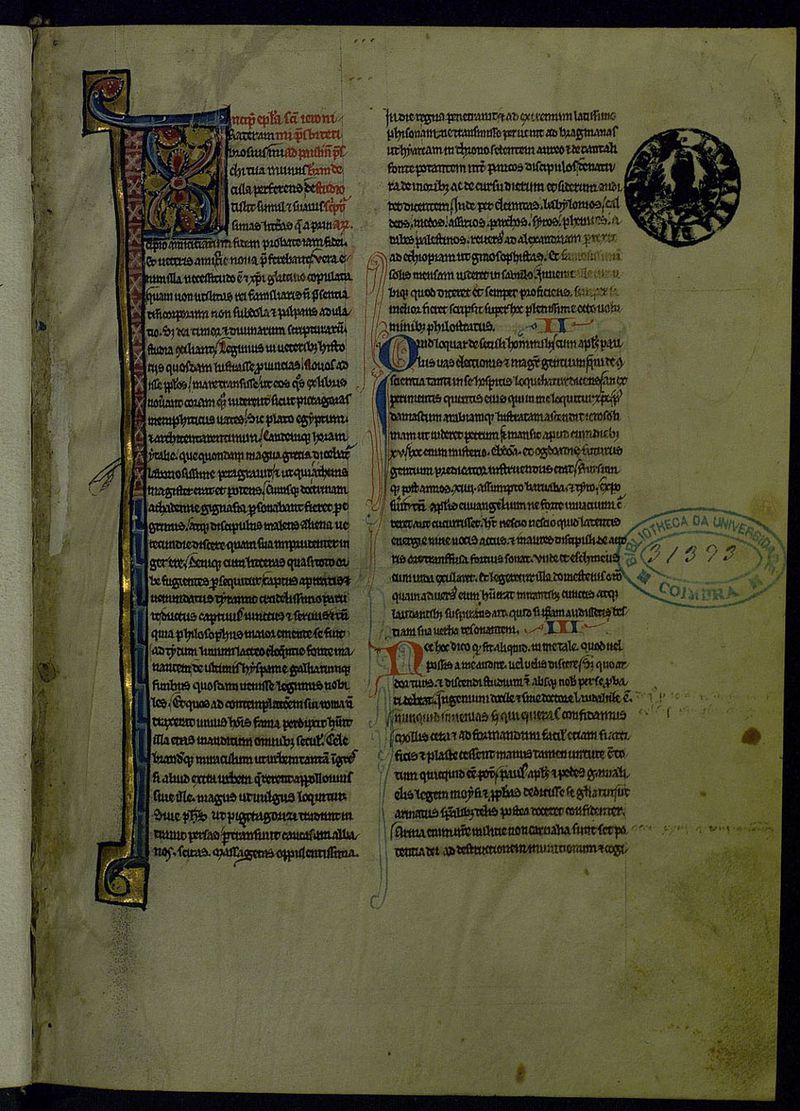 Incip epła sci ieroni
Frater am mi pšbiteri
brosius mi ad paulinū pš
chi tua munus bam de
cula perferens de studio
tulit simul & suauis script
simas littas q a prin arz
cipio amicitiarum fidem probate iam fidei
et ueteris amicitie noua pferebant. Vera e
nim illa necessitudo ē & xpi glutino copulata
quam non utilitas rei familiaris n psentia
tm corporum non subdola & palpans adula
tio. S; dei timor & diuinarum scripturarū
studia conciliant. Legimus in ueterib; histo
riis quosdam lustrasse puincias. Nouos ad
isse pplos. mare transisse. ut eos qs ex libris
nouerant coram q uiderent. Sicut pictagoras
memphiticos uates. Sic plato egyptum.
& architen tarentinum. Eandemq; horam
ytalie. que quondam magna grecia dicebat
laboriosissime peragrauit. & ut qui athenis
magister erat & potens. Cuiusq; doctrinam
achademie gignasia psonabant fieret pe
grinus. atq; discipulus malens aliena ue
recunde discere quam sua impudenter in
gerere. Deniq; cum litteras quasi toto or
be fugientes psequitur. captus a piratis &
uenundatus tyranno crudelissimo paruit
ductus captiuus uinctus & seruus. & tn
quia philosophus maior emente se fuit
ad tytum liuium lacteo eloquentie fonte ma
nantem de ultimis hyspanie galliarumq;
finibus quosdam uenisse legimus nobi
les. Et quos ad contemplacōem sui roma ñ
traxerat unius hois fama perduxit. Habuit
illa etas inauditum omnib; seculis. Cele
brandūq; miraculum ut urbem tantā īgressi
aliud extra urbem quererent. appollonius
siue ille magus ut uulgus loquitur
Siue phs ut pigtagorici tradunt. in
trauit persas. ptransiuit caucasum. alba
nos. scitas. massagetas. oppulentissima
Indie regna penetrauit. & ad extremum latissimo
phison amne transmisso peruenit ad bragmanas
ut hyarcam in throno sedentem aureo & de tantali
fonte potantem. inter paucos discipulos. de natu
ra. de morib; ac de cursu dierum et siderum audi
ret docentem. Inde per elemitas. babylonios. cal
deos. medos. assirios. parthos. syros. phenices. a
rabes. palestinos. reuersus ad alexandriam perrex
ad ethiopiam ut gimosophistas. & famosissimam
solis mensam uideret in sabulo. Inuenit
biq; quod disceret & semper proficiens. semper se
melior fieret. scripsit super hoc plenissime octo uolu
minib; philostratus. II
Quid loquar de seculi hominib; cum apls pau
lus uas electionis & magr gentium qui de
scientia tanti in se hospitis loquebatur dicens. an ex
perimentum queritis eius qui in me loquitur xpc. p
damascum arabiamq; lustratam ascendit ierosoli
mam ut uideret petrum & mansit apud eum dieb;
xv. hoc enim misterio. ebdoā. et ogdoadis. futurus
gentium predicator instruendus erat. Rursum
q; post annos. xiiii. assumpto barnaba. & tyto. expo
suit cū. aplis euangelium ne forte in uacuum
rret aut cucurrisset. Ht nescio quid latentis
energie uiue uocis actus. & in aures discipuli de aucto
ris ore transfusa fortius sonat. Vnde et eschineus
cum rodi exularet. & legeretur illa demostenis orō
quam aduersus eum habuerat mirantib; cunctis atq;
laudantib; suspirans ait. quid si ipsam audissetis bes
tiam sua uerba resonantem. III
Nec hoc dico q sit aliquid. in me tale. quod uel
possis a me audire. uel uelis discere. S; quo ar
dor tuus. & discendi studium & absq; nob per se pba
ri debeat. Ingenium docile & sine doctore laudabile ē.
Nunquid inuenias s; qui queras consideramus
Mollis cera & ad formandum facilis etiam si arti
ficis & plaste cessent manus tamen uirtute ē to
tum quicquid ee pot. paulus apls & pedes gamali
elis legem moysi & pphas didicisse se gloriatur
armatus spualib; telis postea doceret confidenter.
Arma enim nre milicie non carnalia sunt set po
tentia dei ad destructionem munitionum & cogi
BIBLIOTHECA DA UNIVERSIDADE
31393
COIMBRA